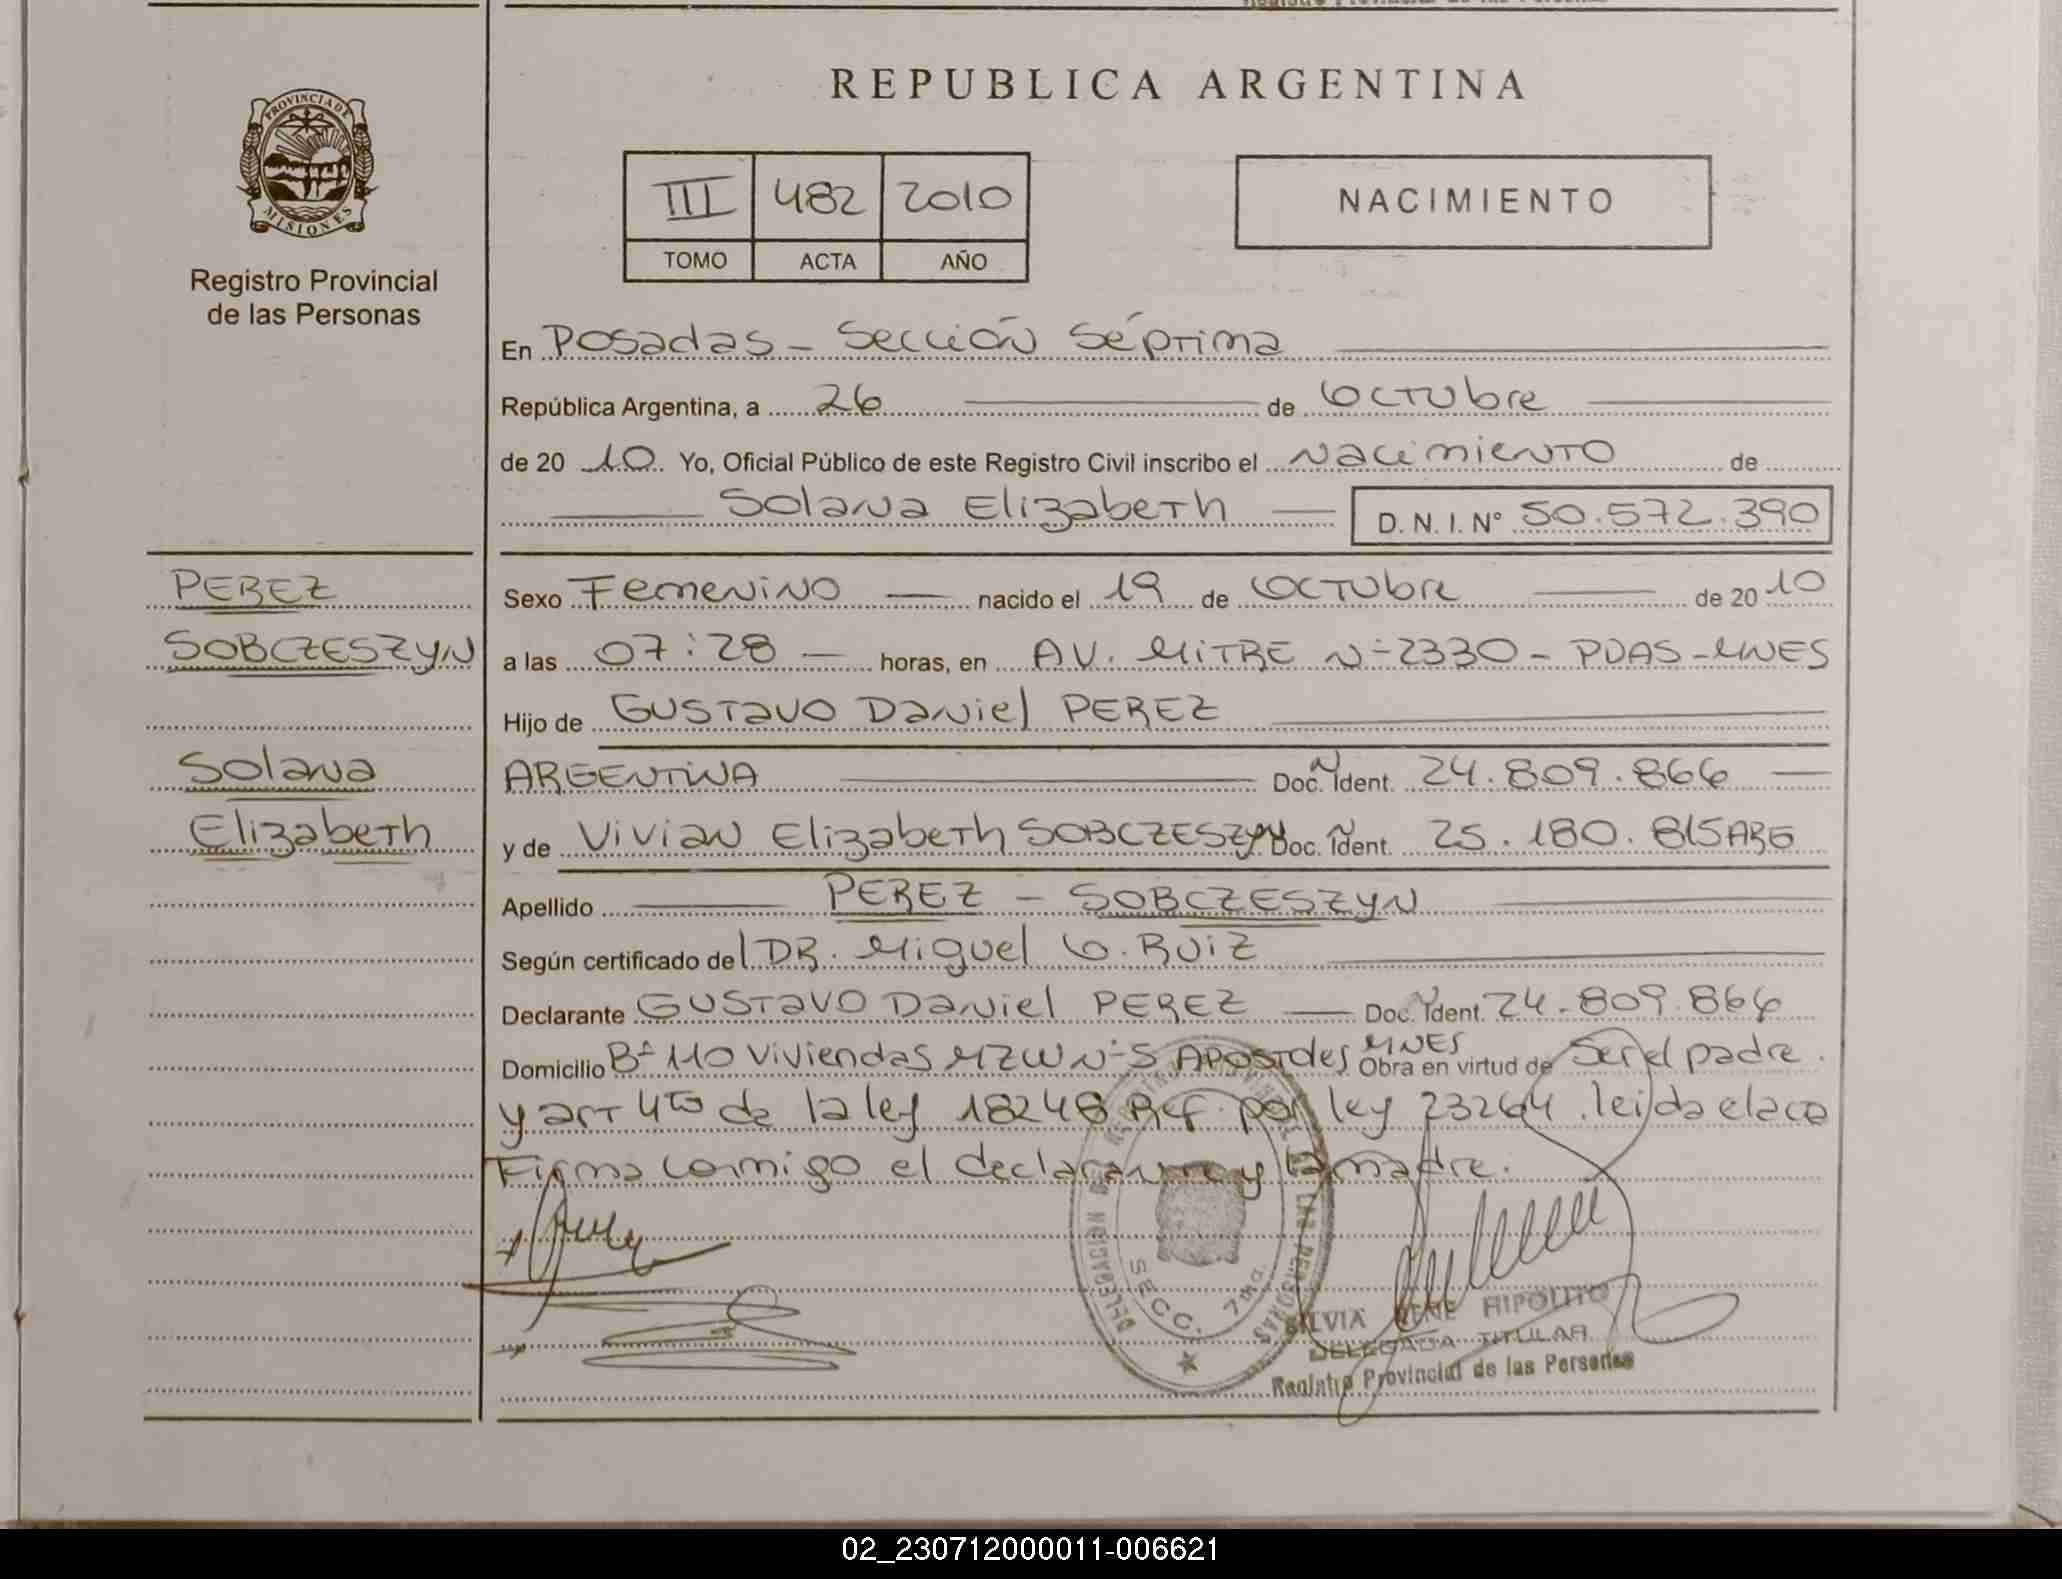 REPUBLICA ARGENTINA
PROVINCIA DE
MISIONES
Registro Provincial
de las Personas
III 482 2010
TOMO ACTA AÑO
NACIMIENTO
En Posadas - Sección Séptima
República Argentina, a 26 de Octubre
de 20 10 Yo, Oficial Público de este Registro Civil inscribo el Nacimiento de
Solana Elizabeth D. N. I. N° 50.572.390
PEREZ
SOBCZESZYN
Solana
Elizabeth
Sexo Femenino nacido el 19 de Octubre de 20 10
a las 07:28 horas, en AV. MITRE N° 2330 - PDAS - MNES
Hijo de GUSTAVO Daniel PEREZ
ARGENTINA Doc. Ident. 24.809.866
y de Vivian Elizabeth SOBCZESZYN Doc. Ident. 25.180.815 ARG
Apellido PEREZ - SOBCZESZYN
Según certificado del DR. Miguel O. RUIZ
Declarante GUSTAVO Daniel PEREZ Doc. Ident. 24.809.866
Domicilio B° 110 Viviendas MZW N° 5 APOSTOles MNES Obra en virtud de Ser el padre.
y art 4to de la ley 18248 Ref. por ley 23264. leida el acta
Firma conmigo el declarante y la madre.
DELEGACION
DE LAS PERSONAS
SECC. 7ma.
SILVIA IRENE HIPOLITO
DELEGADA TITULAR
Registro Provincial de las Personas
02_230712000011-006621